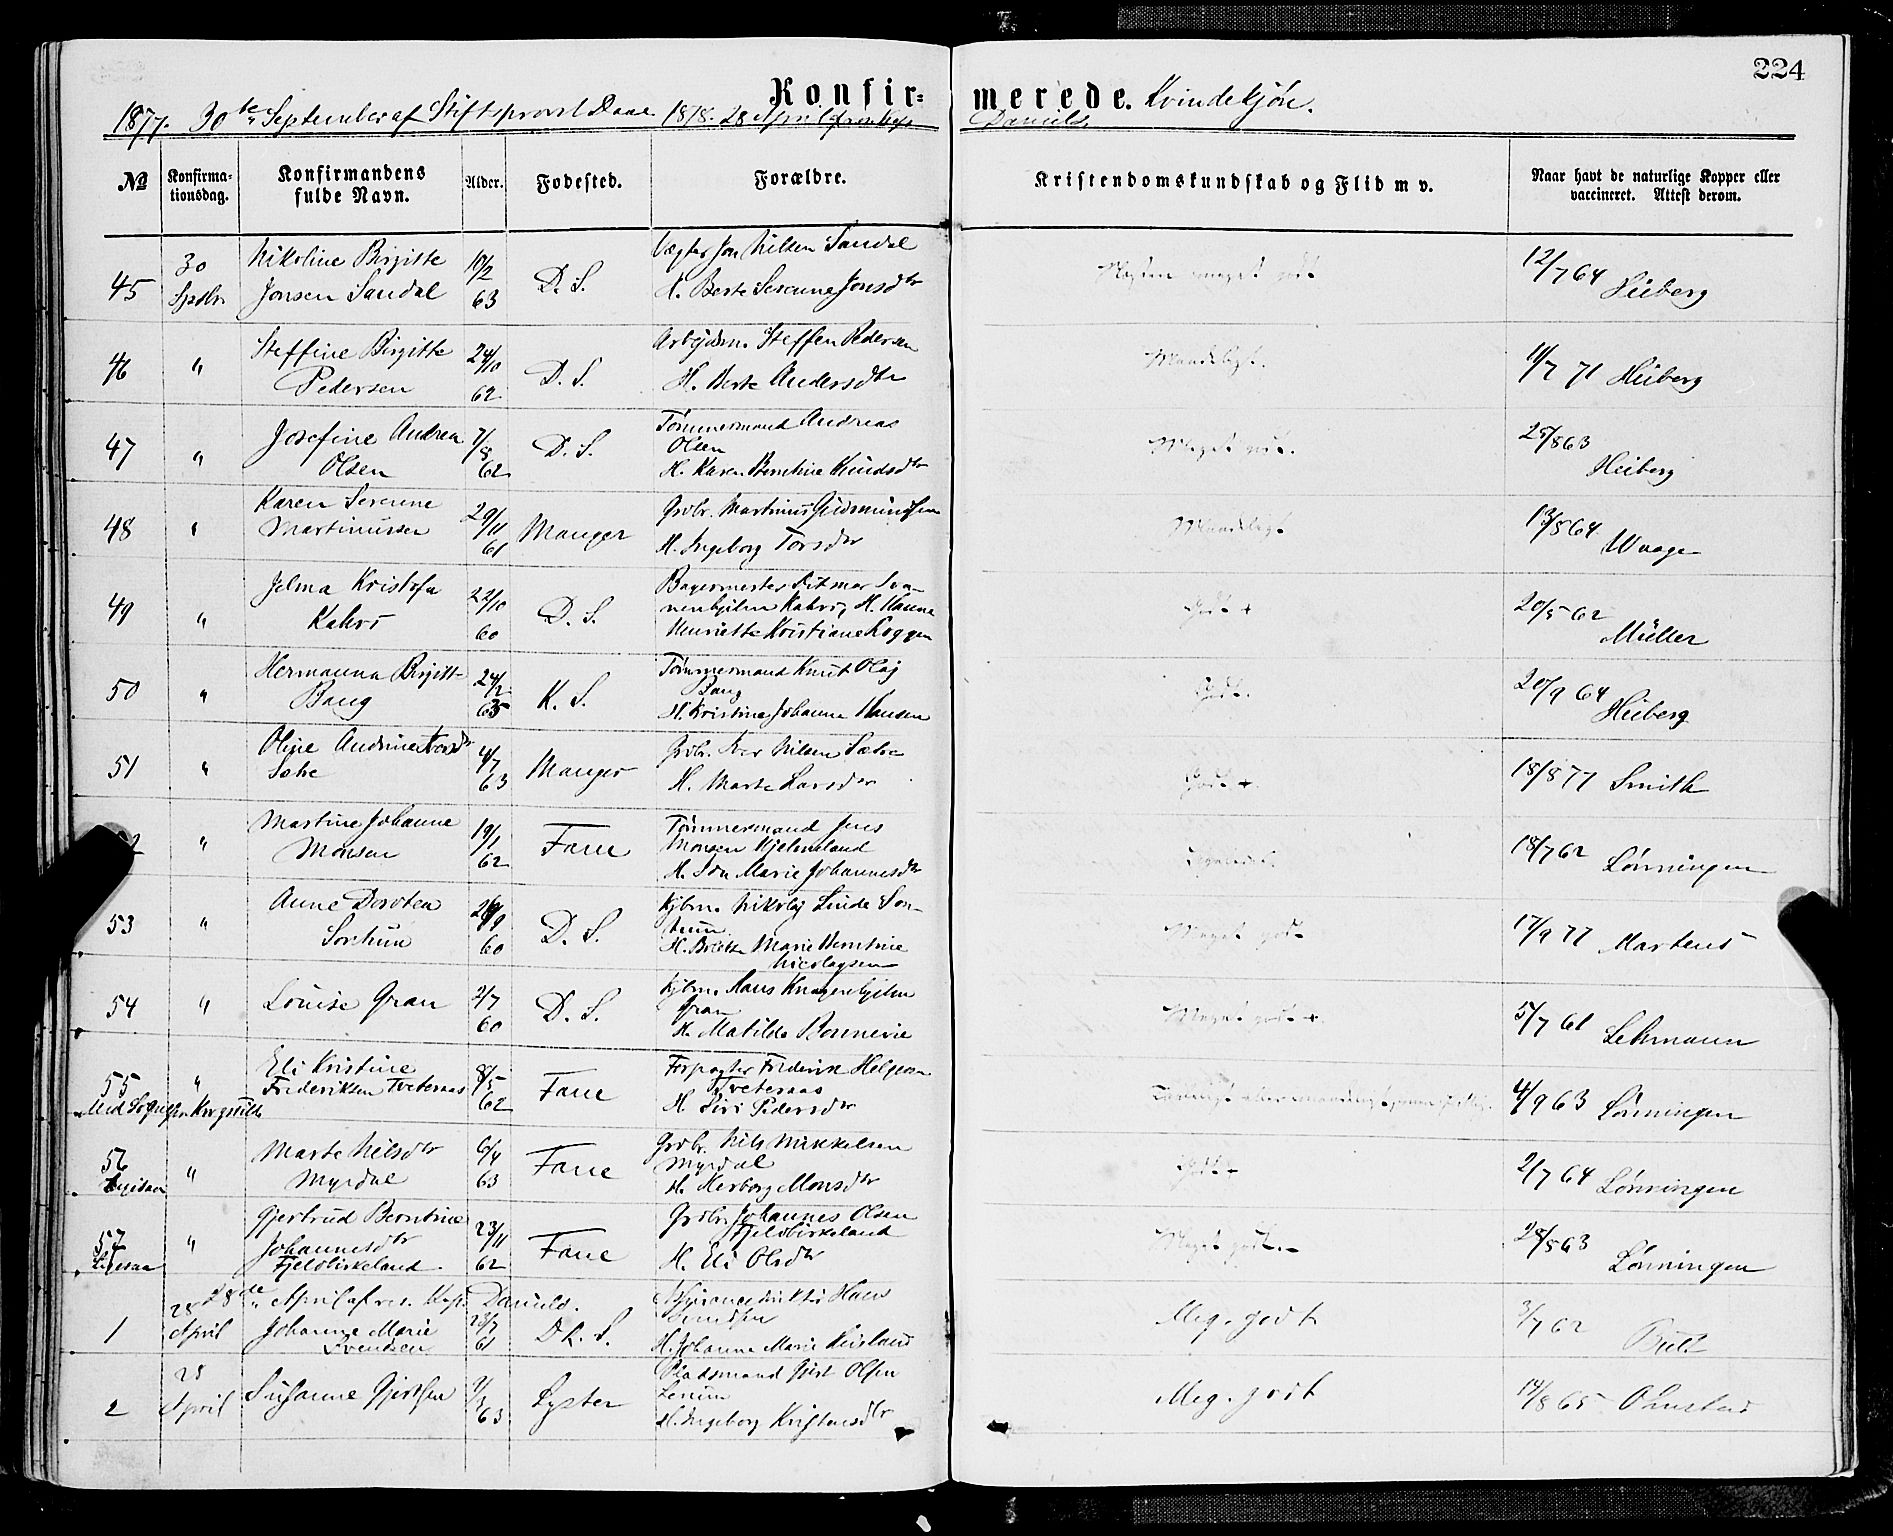 224
Konfirmerede. Kvindekjøn.
1877. 30te September af Stiftsprovst Daae 1878. 28 April
Daniels.
№ Konfirmationsdag. Konfirmandens fulde Navn. Alder. Fodested. Forældre. Kristendomskundskab og Flid m v. Naar havt de naturlige Kopper eller vaccineret. Attest derom.
45 30 Septbr. Nikoline Birgitte Jonsen Sandal 10/2 63 D. S. Vægter Jon Nilsen Sandal H. Berte Serenne Jonsdtr meget godt 12/7 64 Heiberg
46 " Steffine Birgitte Pedersen 24/10 62 D. S. Arbeidsm. Steffen Pedersen H. Berte Andersdtr Maadeligt. 11/7 71 Heiberg
47 " Josefine Andrea Olsen 7/8 62 D. S. Tømmermand Andreas Olsen H. Karen Berntine Knudsdtr Meget godt. 25/8 63 Heiberg
48 " Karen Serenne Martinussen 29/11 61 Manger Grdbr. Martinus Gudmundsen H. Ingeborg Torsdtr Maadeligt 13/8 64 Waage
49 " Jelma Kristofa Kahrs 22/10 60 D. S. Bagermester Ditmar Kahrs, H. Hanna Henriette Kristiane Koggen Godt + 20/5 62 Müller
50 " Hermanna Birgitte Bang 24/2 63 K. S. Tømmermand Knut Olaj Bang H. Kristine Johanne Hansen Godt. 20/9 64 Heiberg
51 " Oline Andrine Iversdtr Sætre 4/7 63 Manger Grdbr. Iver Nilsen Sætre H. Marte Larsdtr Godt +. 18/8 77 Smith
" Martine Johanne Monsen 19/1 62 Fane Tømmermand Jens Monsen Hjelmeland H. Marie Johannesdtr 18/7 62 Lønningen
53 " Anne Dorotea Sontum 60 D. S. Kjbm. Nikolaj Linde Sontum H. Marie Berntine Nicolaysen Meget godt 17/9 77 Martens
54 " Louise Gran 2/7 60 D. S. Kjbm. Hans Knagenhjelm Gran H. Matilde Bonnevie Meget godt + 5/7 61 Lehmann
55 " Eli Kristine Frederiksen Tveternaas 8/5 62 Fane Forpagter Frederik Helgesen Tveternaas H. Siri Pedersdtr 4/9 63 Lønningen
56 " Marte Nilsdtr Myrdal 6/4 63 Fane Grdbr. Nils Mikkelsen Myrdal H. Herborg Monsdtr Godt + 2/7 64 Lønningen
57 " Gjertrud Berntine Johannesdtr Fjeldbirkeland 23/11 62 Fane Grdbr. Johannes Olsen Fjeldbirkeland H. Eli Olsdtr Meget godt.- 28/5 63 Lønningen
28de April af res. Kap. Daniels.
1 28 April Johanne Marie Svendsen 23/7 61 Dk. S. Hans Svendsen H. Johanne Marie Meg. godt 3/7 62 Bull
2 28 April Susanne Gjertsen 63 Lyster Pladsmand Gjert Olsen H. Ingeborg Kristensdtr Meg. godt 14/8 65 Olmstad